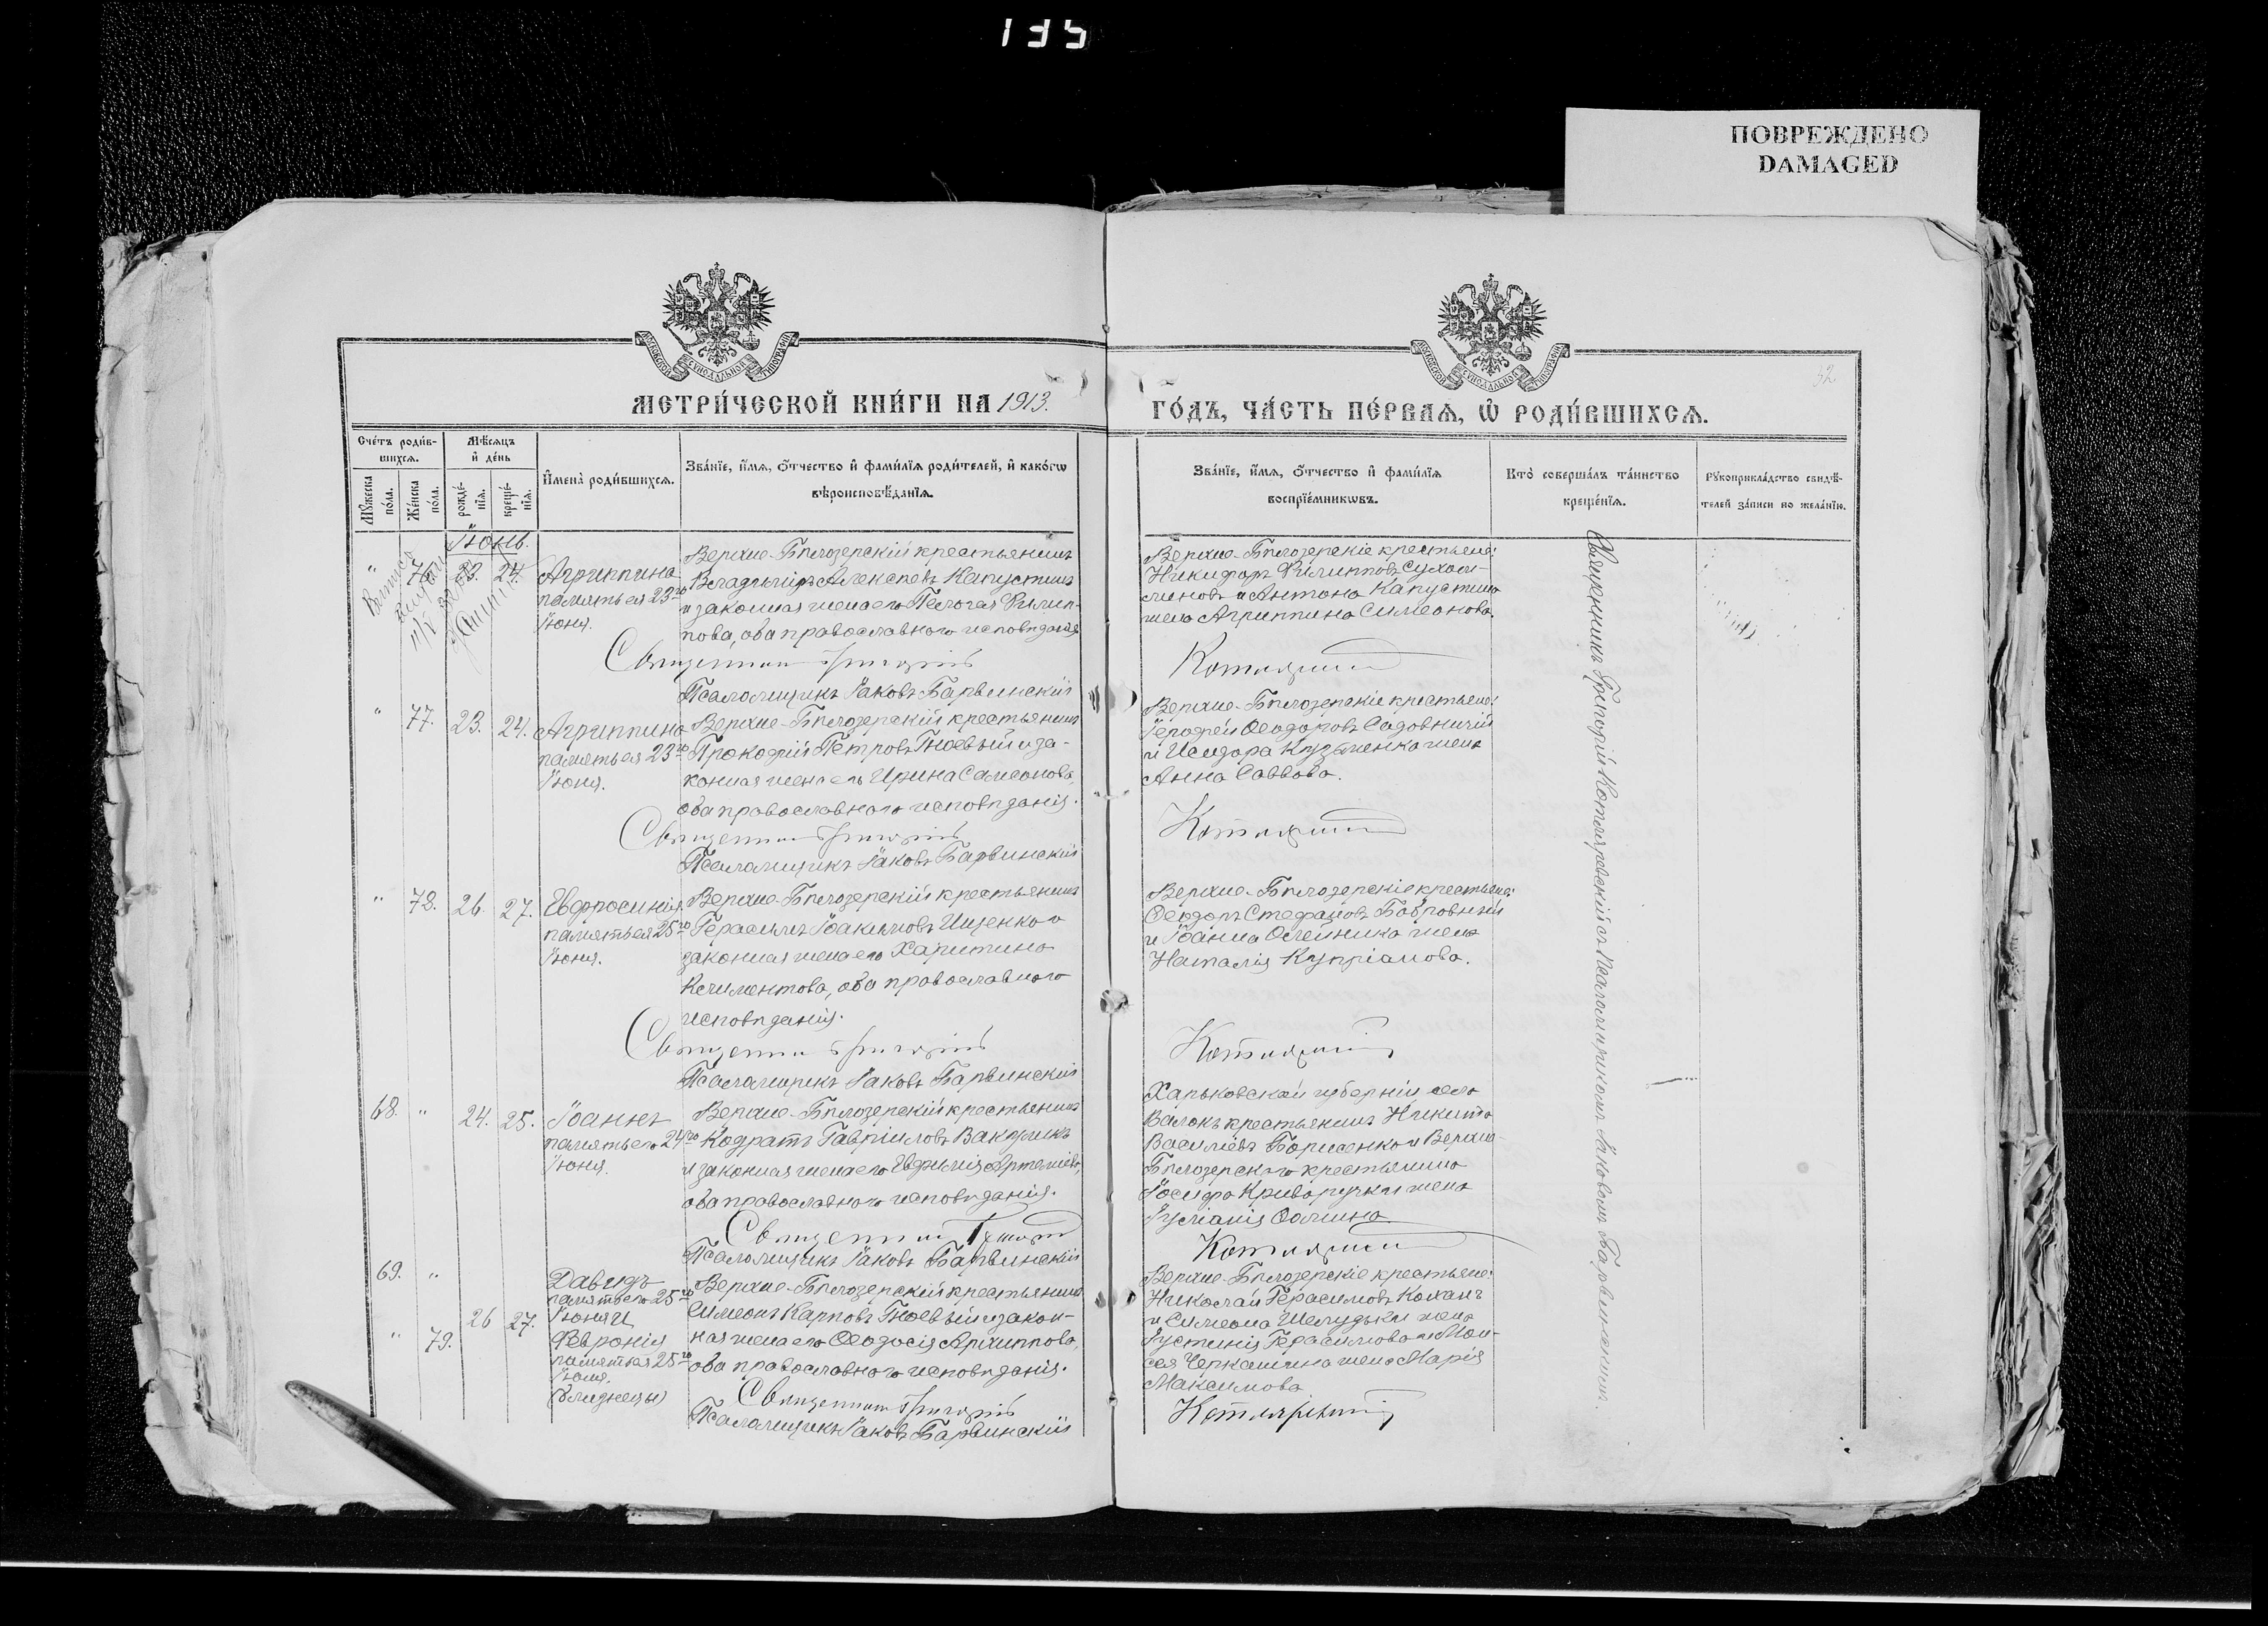 135
ПОВРЕЖДЕНО
DAMAGED
МОСКОВСКОЙ СѴНОДАЛЬНОЙ ТИПОГРАФІИ
МОСКОВСКОЙ СѴНОДАЛЬНОЙ ТИПОГРАФІИ
52
МЕТРИ́ЧЕСКОЙ КНИ́ГИ НА 1913.
ГО́ДЪ, ЧА́СТЬ ПЕ́РВАѦ, Ѡ҆ РОДИ́ВШИХСѦ.
Сче́тъ роди́в-
шихсѧ.
Мꙋ́жеска по́ла.
Же́нска по́ла.
Мѣ́сѧцъ
и҆ де́нь
рожде́-нїѧ.
креще́-нїѧ.
И҆мена̀ роди́вшихсѧ.
Зва́нїе, и҆́мѧ, ѻ҆́тчество и҆ фами́лїѧ роди́телей, и҆ како́гѡ
вѣроисповѣ́данїѧ.
Зва́нїе, и҆́мѧ, ѻ҆́тчество и҆ фами́лїѧ
воспрїе́мникѡвъ.
Кто̀ соверша́лъ та́инство
креще́нїѧ.
Рꙋкоприкла́дство свидѣ́-
телей за́писи по жела́нїю.
Іюнь.
" 76 23. 24.
Агриппина
память ея 23го
Іюня.
Верхне-Бѣлозерскій крестьянинъ
Владиміръ Алексѣевъ Капустинъ
и законная жена его Пелагея Филип-
пова, оба православнаго исповѣданія
Священникъ Григорій
Псаломщикъ Іаковъ Барвинскій
Верхне-Бѣлозерскіе крестьяне:
Никифоръ Филипповъ Сухом-
линовъ и Антона Капустина
жена Агриппина Симеонова.
Котляревскій
" 77. 23. 24.
Агриппина
память ея 23го
Іюня.
Верхне-Бѣлозерскій крестьянинъ
Прокофій Петровъ Гноевый и за-
конная жена его Ирина Самсонова,
оба православнаго исповѣданія.
Священникъ Григорій
Псаломщикъ Іаковъ Барвинскій
Верхне-Бѣлозерскіе крестьяне:
Іерофей Ѳеодоровъ Садовничій
и Исидора Кузьменка жена
Анна Саввова.
Котляревскій
" 78. 26. 27.
Евфросинія
память ея 25го
Іюня.
Верхне-Бѣлозерскій крестьянинъ
Герасимъ Іоакимовъ Ищенко и
законная жена его Харитина
Климентова, оба православнаго
исповѣданія.
Священникъ Григорій
Псаломщикъ Іаковъ Барвинскій
Верхне-Бѣлозерскіе крестьяне:
Ѳеодоръ Стефановъ Бобровный
и Іоанна Олейника жена
Наталія Купріанова.
Котляревскій
68. " 24. 25.
Іоаннъ
память его 24го
Іюня.
Верхне-Бѣлозерскій крестьянинъ
Кодратъ Гавріиловъ Вакуликъ
и законная жена его Евфимія Артемьева,
оба православнаго исповѣданія.
Священникъ Григорій
Псаломщикъ Іаковъ Барвинскій
Харьковской губерніи села
Валокъ крестьянинъ Никита
Василіевъ Борисенко и Верхне-
Бѣлозерскаго крестьянина
Іосифа Криворучки жена
Іуліанія Ѳомина
Котляревскій
69. "
Давидъ
память его 25го
Іюня и
26 27.
" 79.
Февронія
память ея 25го
Іюня.
(близнецы)
Верхне-Бѣлозерскій крестьянинъ
Симеонъ Карповъ Гноевый и закон-
ная жена его Ѳеодосія Архиппова,
оба православнаго исповѣданія.
Священникъ Григорій
Псаломщикъ Іаковъ Барвинскій
Верхне-Бѣлозерскіе крестьяне:
Николай Герасимовъ Коханъ
и Симеона Шелудьки жена
Іустинія Герасимова и Мои-
сея Черкашина жена Марія
Максимова
Котляревскій
Священникъ Григорій Котляревскій съ псаломщикомъ Іаковомъ Барвинскимъ.